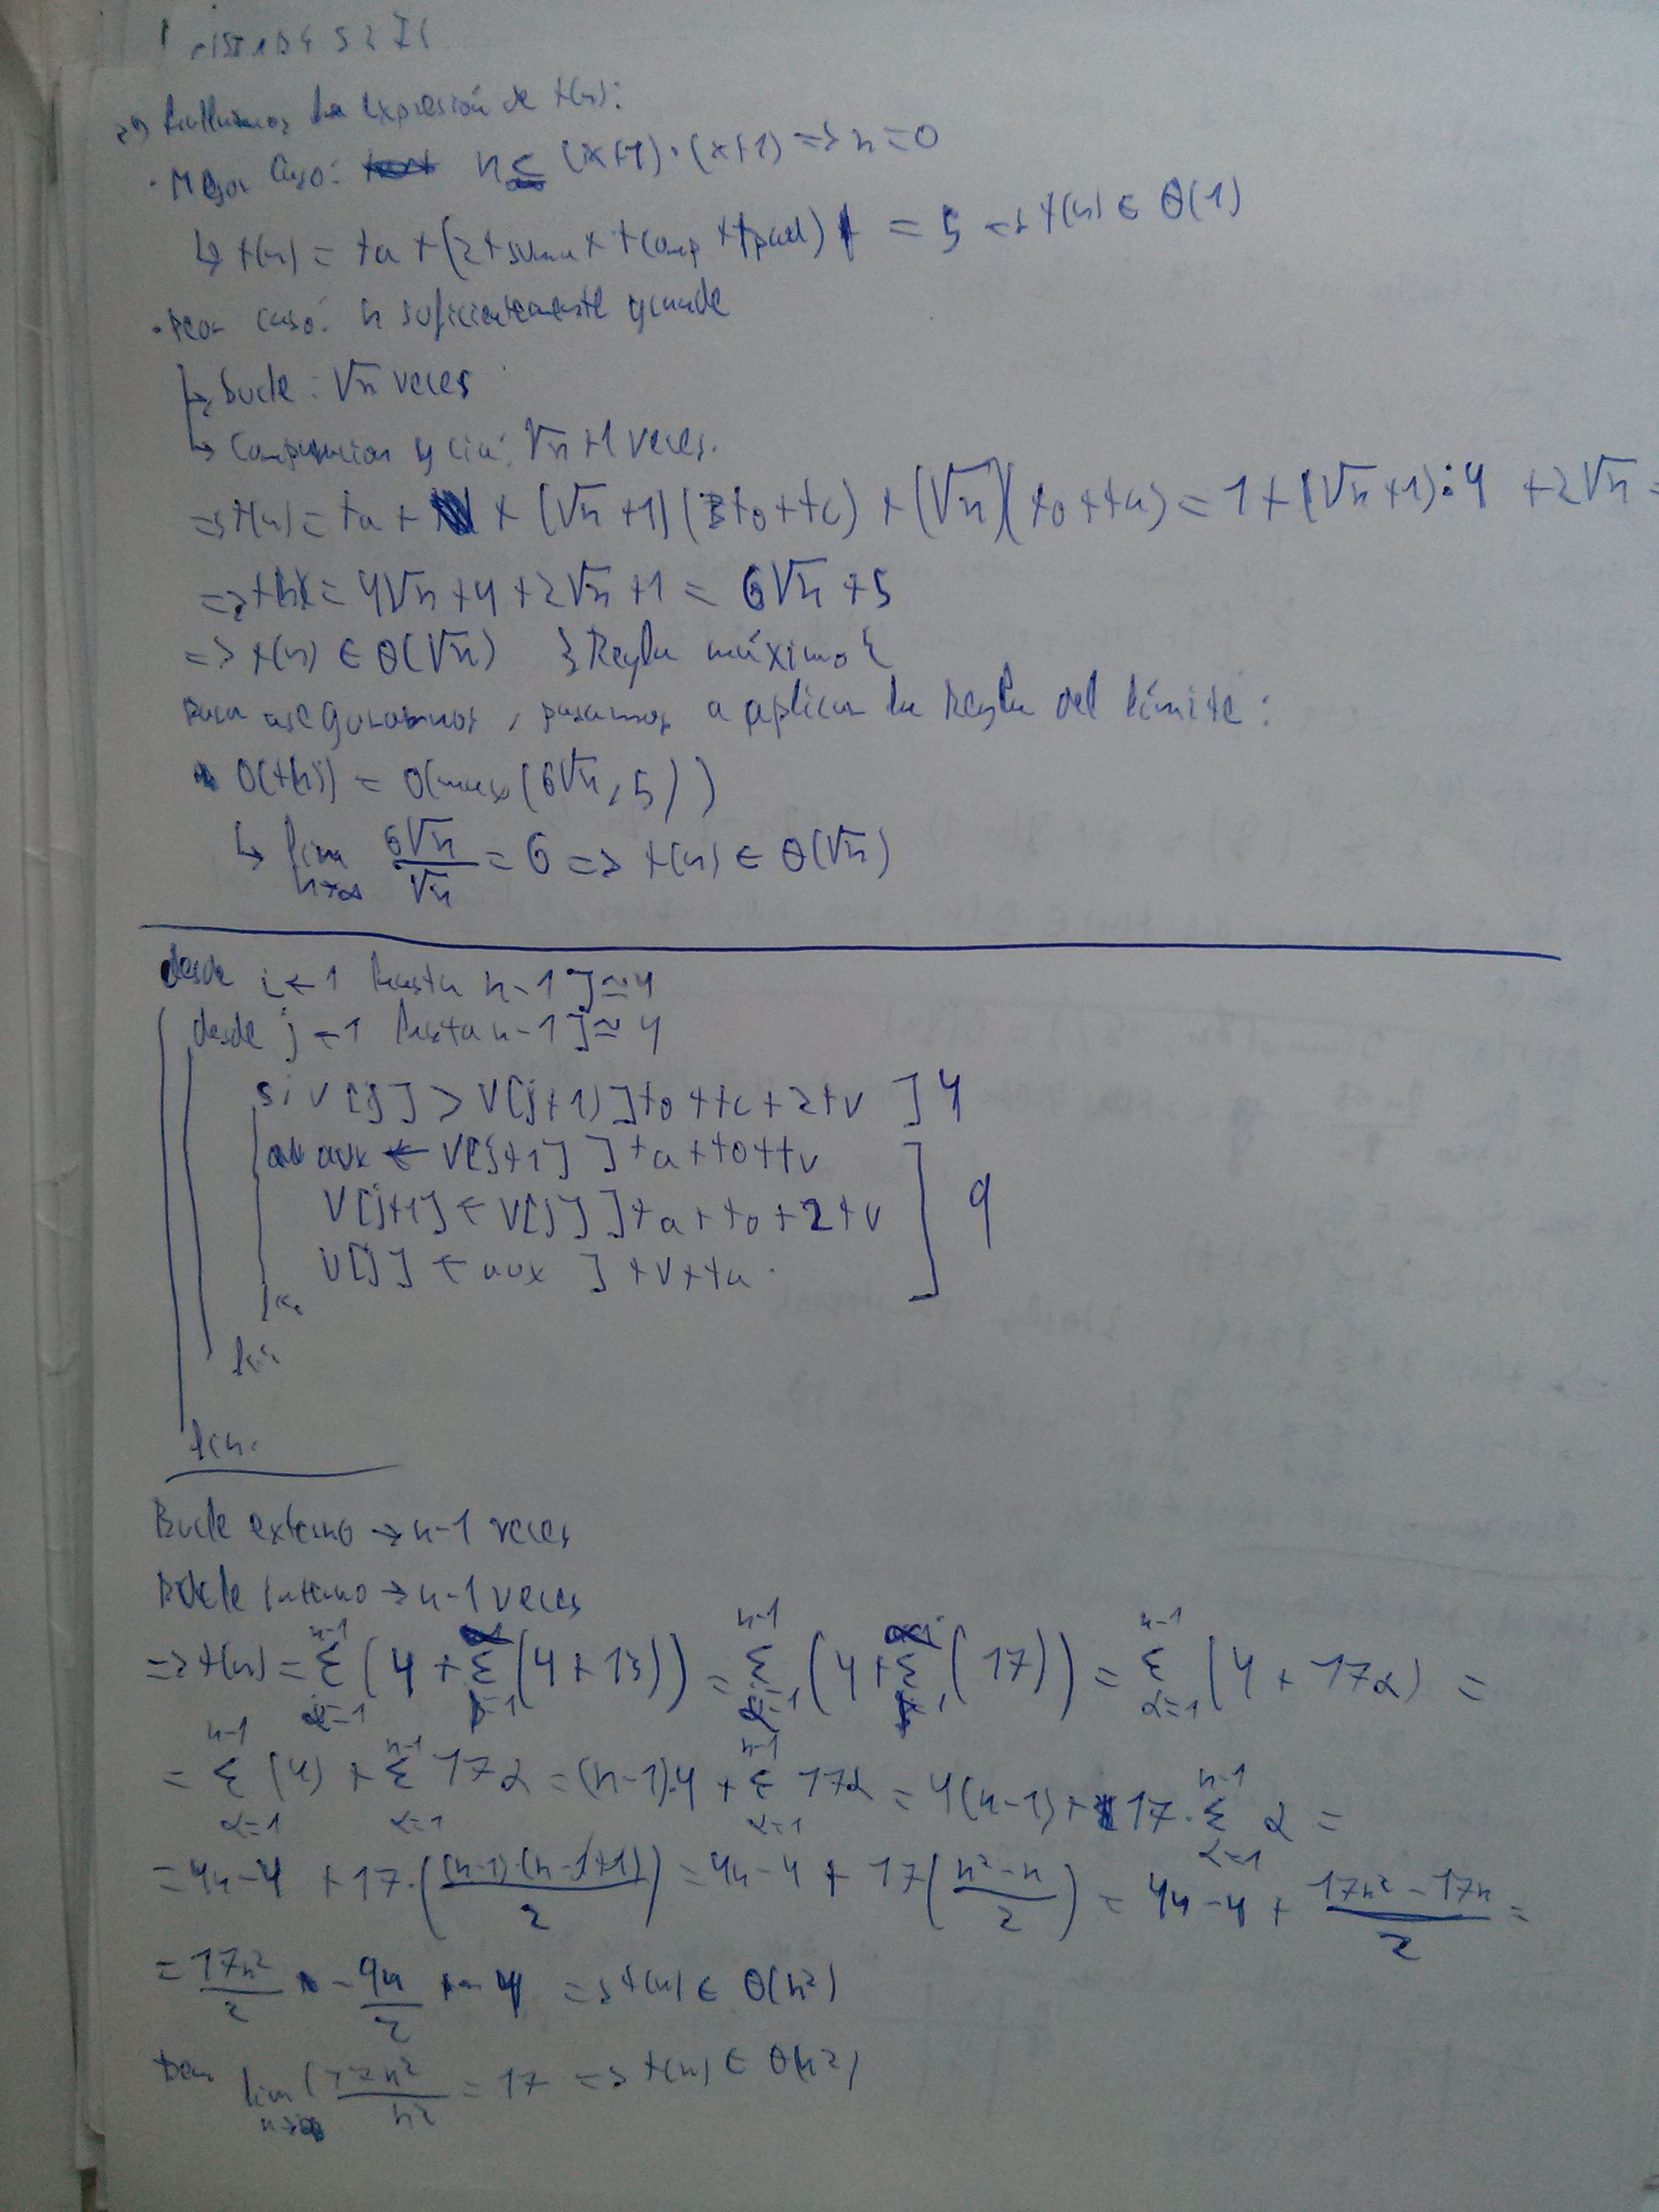 Hallamos la expresión de t(n):
· Mejor caso: n ≤ (x+1)·(x+1) => n=0
↳ t(n) = ta + (2tsuma + tcomp + tprod) = 5 => t(n) ∈ θ(1)
· Peor caso: n suficientemente grande
↳ Bucle: √n veces
↳ Comparacion y cia: √n+1 veces.
=> t(n) = ta + (√n+1)(3to+tc) + (√n)(to+ta) = 1+(√n+1)·4 +2√n =
=> t(n) = 4√n+4+2√n+1 = 6√n+5
=> t(n) ∈ θ(√n) }Regla máximo{
Para asegurarnos, pasamos a aplicar la Regla del límite:
O(t(n)) = O(max(6√n, 5))
↳ lim n→∞ 6√n/√n = 6 => t(n) ∈ θ(√n)
desde i←1 hasta n-1 ]≃4
desde j←1 hasta n-1 ]≃4
si v[j] > v[j+1] ] to+tc+2tv ] 4
aux ← v[j+1] ] ta+to+tv
v[j+1] ← v[j] ] ta+to+2tv ] 9
v[j] ← aux ] tv+ta
fin.
Bucle externo → n-1 veces
Bucle interno → n-1 veces
=> t(n) = Σ(4+Σ(4+13)) = Σ(4+Σ(17)) = Σ(4+17α) =
= Σ(4) + Σ17α = (n-1)·4 + Σ17α = 4(n-1) + 17·Σα =
= 4n-4 + 17·((n-1)·(n-1+1)/2) = 4n-4 + 17(n²-n/2) = 4n-4 + 17n²-17n/2 =
= 17n²/2 - 9n/2 - 4 => t(n) ∈ θ(n²)
lim n→∞ (17n²/n² = 17 => t(n) ∈ θ(n²)